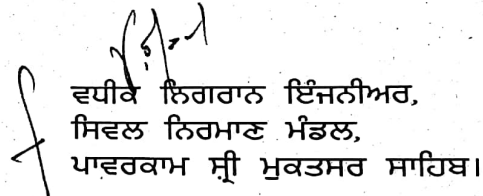 ਵਧੀਕ ਨਿਗਰਾਨ ਇੰਜਨੀਅਰ,
ਸਿਵਲ ਨਿਰਮਾਣ ਮੰਡਲ,
ਪਾਵਰਕਾਮ ਸ਼੍ਰੀ ਮੁਕਤਸਰ ਸਾਹਿਬ।